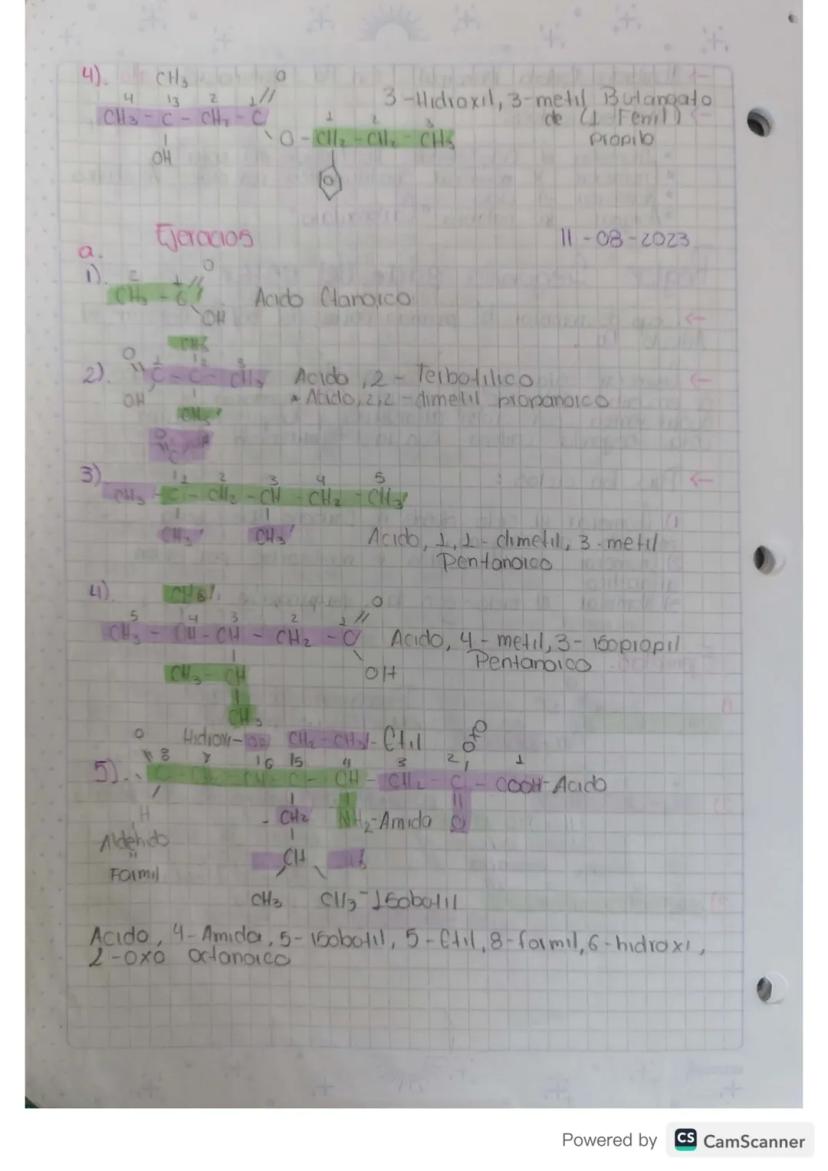 4). CH3 O
4 13 2 1 //
CH3 - C - CH2 - C
OH
3-Hidroxil, 3-metil Butangato
de (1 Fenil)
Propilo
1 2 3
O - CH2 - CH2 - CH3
Ejercicios 11-08-2023
a.
1). 2 1 // O
CH3 - C
OH
Acido Etanoico
CH3
2). O 1 12 3
C - C - CH3 Acido, 2 - Terbotilico
OH CH3 * Acido, 2,2-dimetil propanoico
O
C
3) 12 2 3 4 5
CH3 - C - CH2 - CH - CH2 - CH3
CH3 CH3 Acido, 1, 1 - dimetil, 3-metil
Pentanoico
4) CH3 O
5 4 3 2 1 //
CH3 - CH - CH - CH2 - C Acido, 4 - metil, 3 - isopropil
CH3 - CH OH Pentanoico
CH3
O Hidroxi- CH2 - CH3 - Etil
8 7 16 15 4 3 2 1
5). C - CH - C - CH - CH2 - C - COOH-Acido
H - CH2 NH2-Amida O
Aldehido
CH
Formil
CH3 CH3 - Isobotil
Acido, 4-Amida, 5-isobotil, 5-Etil, 8-formil, 6-hidroxi,
2-oxo octanoico
Powered by CS CamScanner